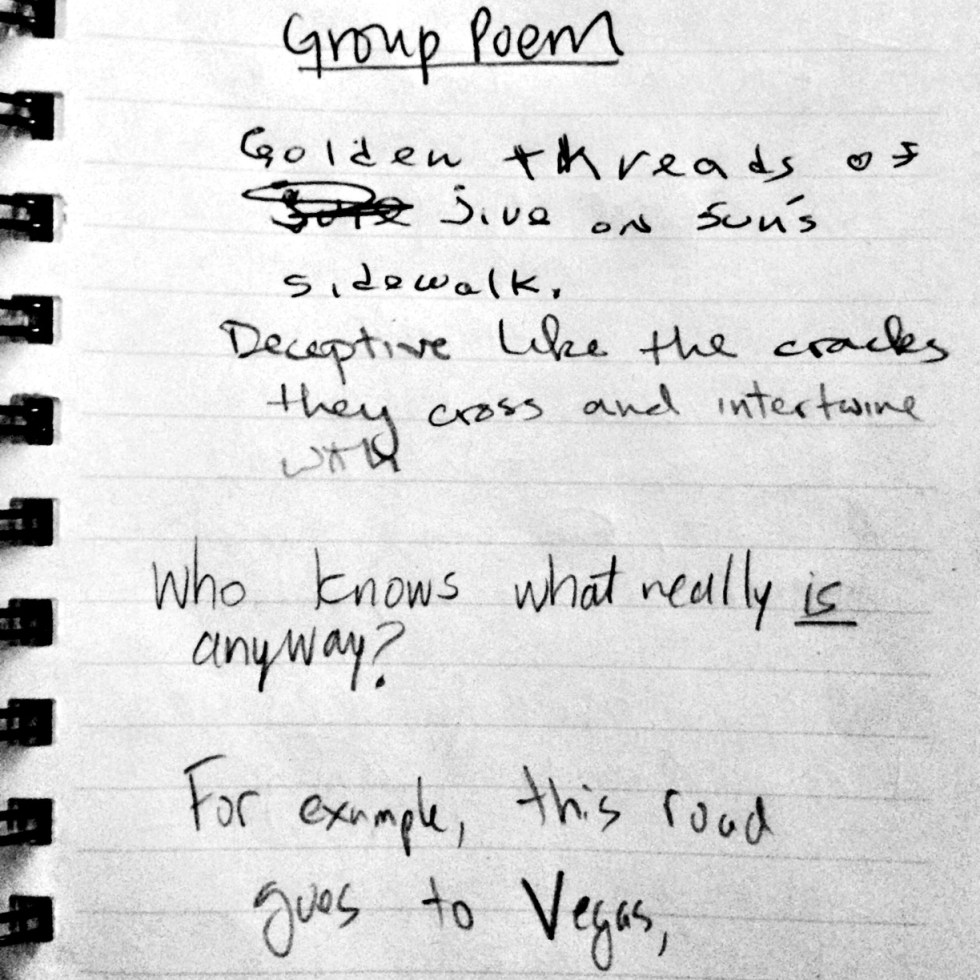 Group Poem
Golden threads of
jive on sun's
sidewalk.
Deceptive like the cracks
they cross and intertwine
with
Who knows what really is
anyway?
For example, this road
goes to Vegas,